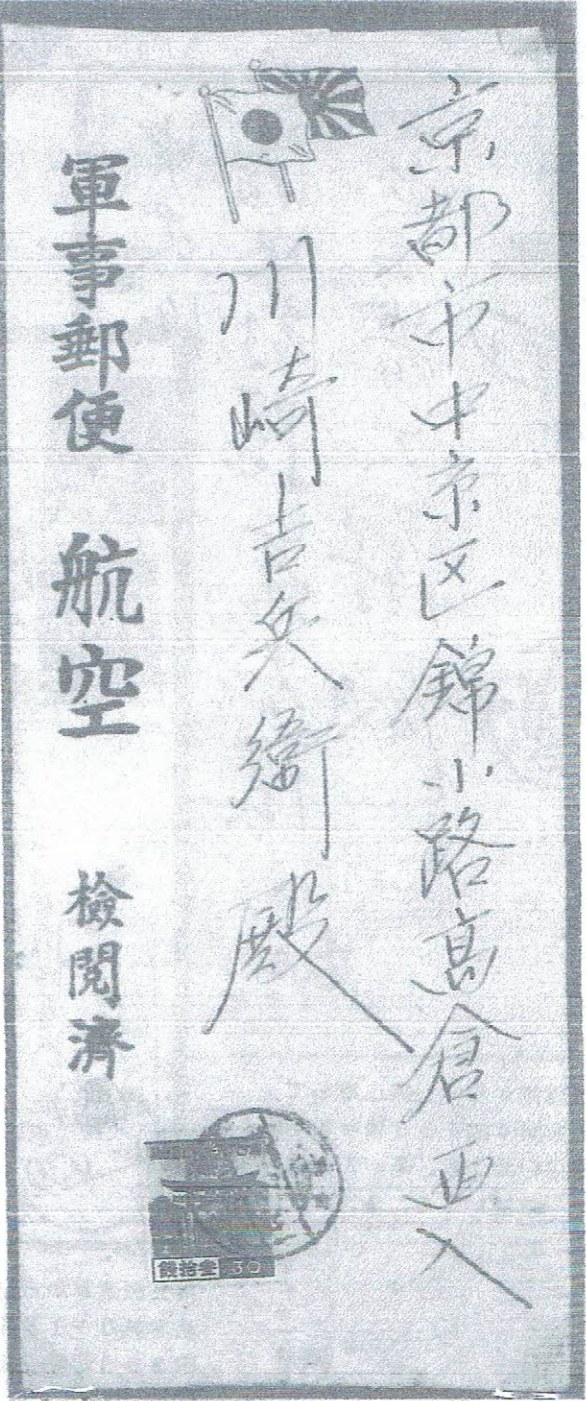 京都市中京区錦小路高倉西入
川崎吉兵衛殿
軍事郵便 航空 檢閲済
錢拾叁 30